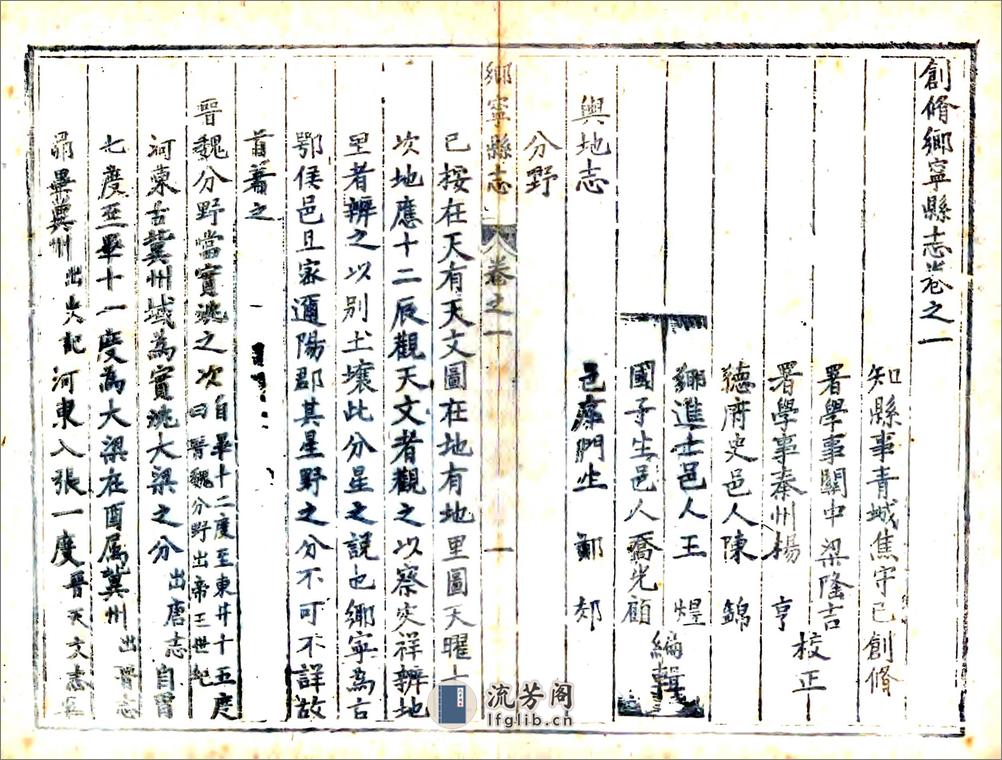 創脩鄉寧縣志卷之一
知縣事青城焦守己創脩
署學事關中梁隆吉
署學事秦州楊 亨
校正
德府史邑人陳 錦
鄉進士邑人王 煌
國子生邑人喬光顧
編輯
邑庠門生 鄭 郟
輿地志
分野
鄉寧縣志 卷之一 一
已按在天有天文圖在地有地里圖天曜十
次地應十二辰觀天文者觀之以察災祥辨地
里者辨之以別土壤此分星之說也鄉寧為古
鄂侯邑且家邇陽郡其星野之分不可不詳故
首著之
晉魏分野當實沈之次自畢十二度至東井十五度曰晉魏分野出帝王世紀
河東古冀州域為實沈大梁之分出唐志自胃
七度至畢十一度為大梁在酉属冀州出晉志
昴畢冀州出史記河東入張一度晉天文志
流芳阁
lfglib.cn